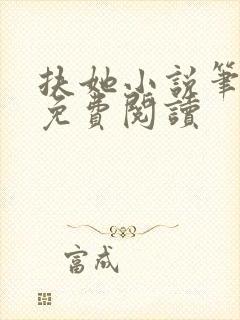 扶她小説筆
免費閱讀
富成